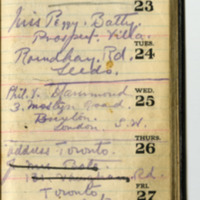 23
Miss Peggy. Batty.
Prospect Villa.
TUES.
24
Roundhay. Rd.
Leeds.
WED.
25
Phil. J. Hammond
3. Mostyn Road.
Brixton.
London. S.W.
THURS.
26
address Toronto.
Rd.
Toronto
FRI.
27